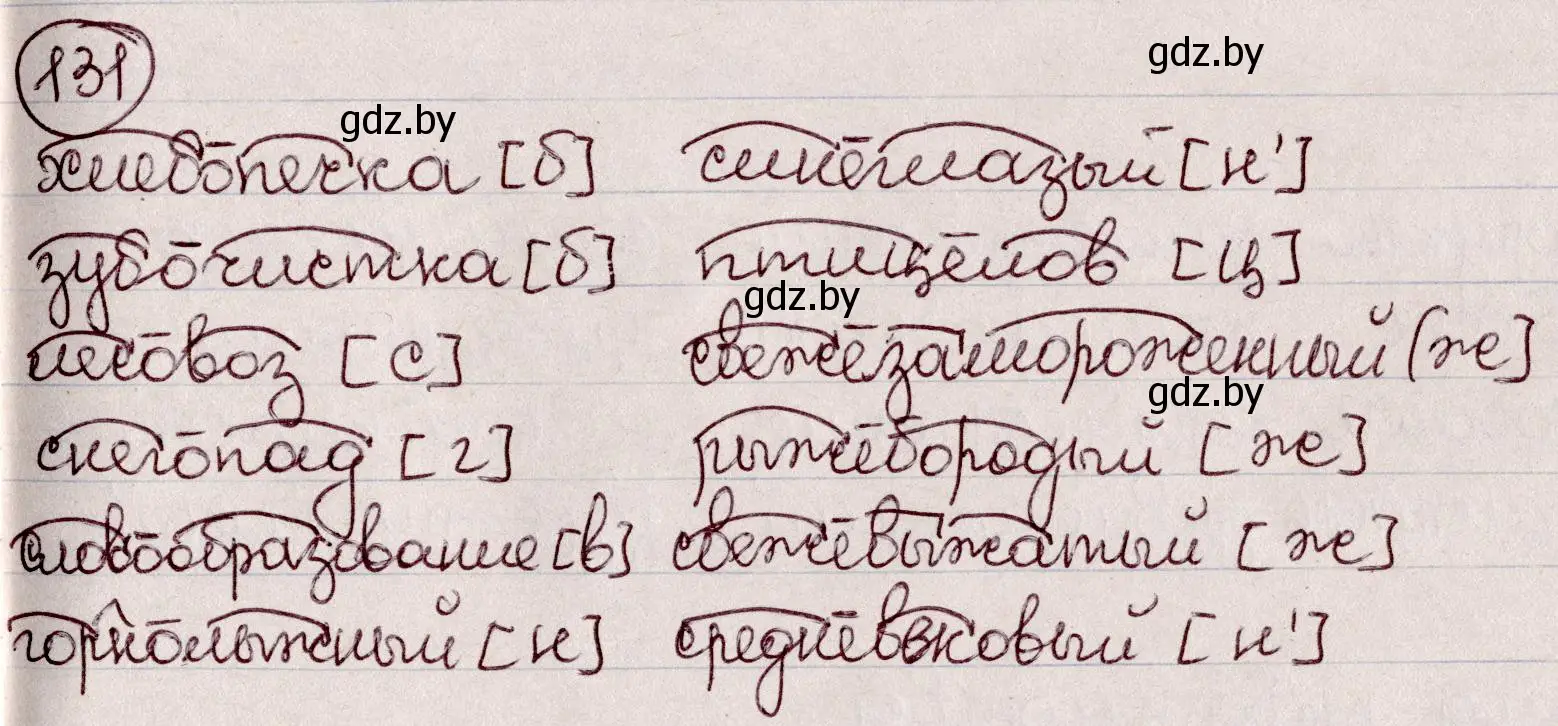 131
gdz.by
gdz.by
хлебопечка [б] синеглазый [н']
зубочистка [б] птицелов [ц]
gdz.by
лесовоз [с] свежезамороженный [ж]
gdz.by
снегопад [г] рыжебородый [ж]
словообразование [в] свежевыжатый [ж]
горнолыжный [н] средневековый [н']